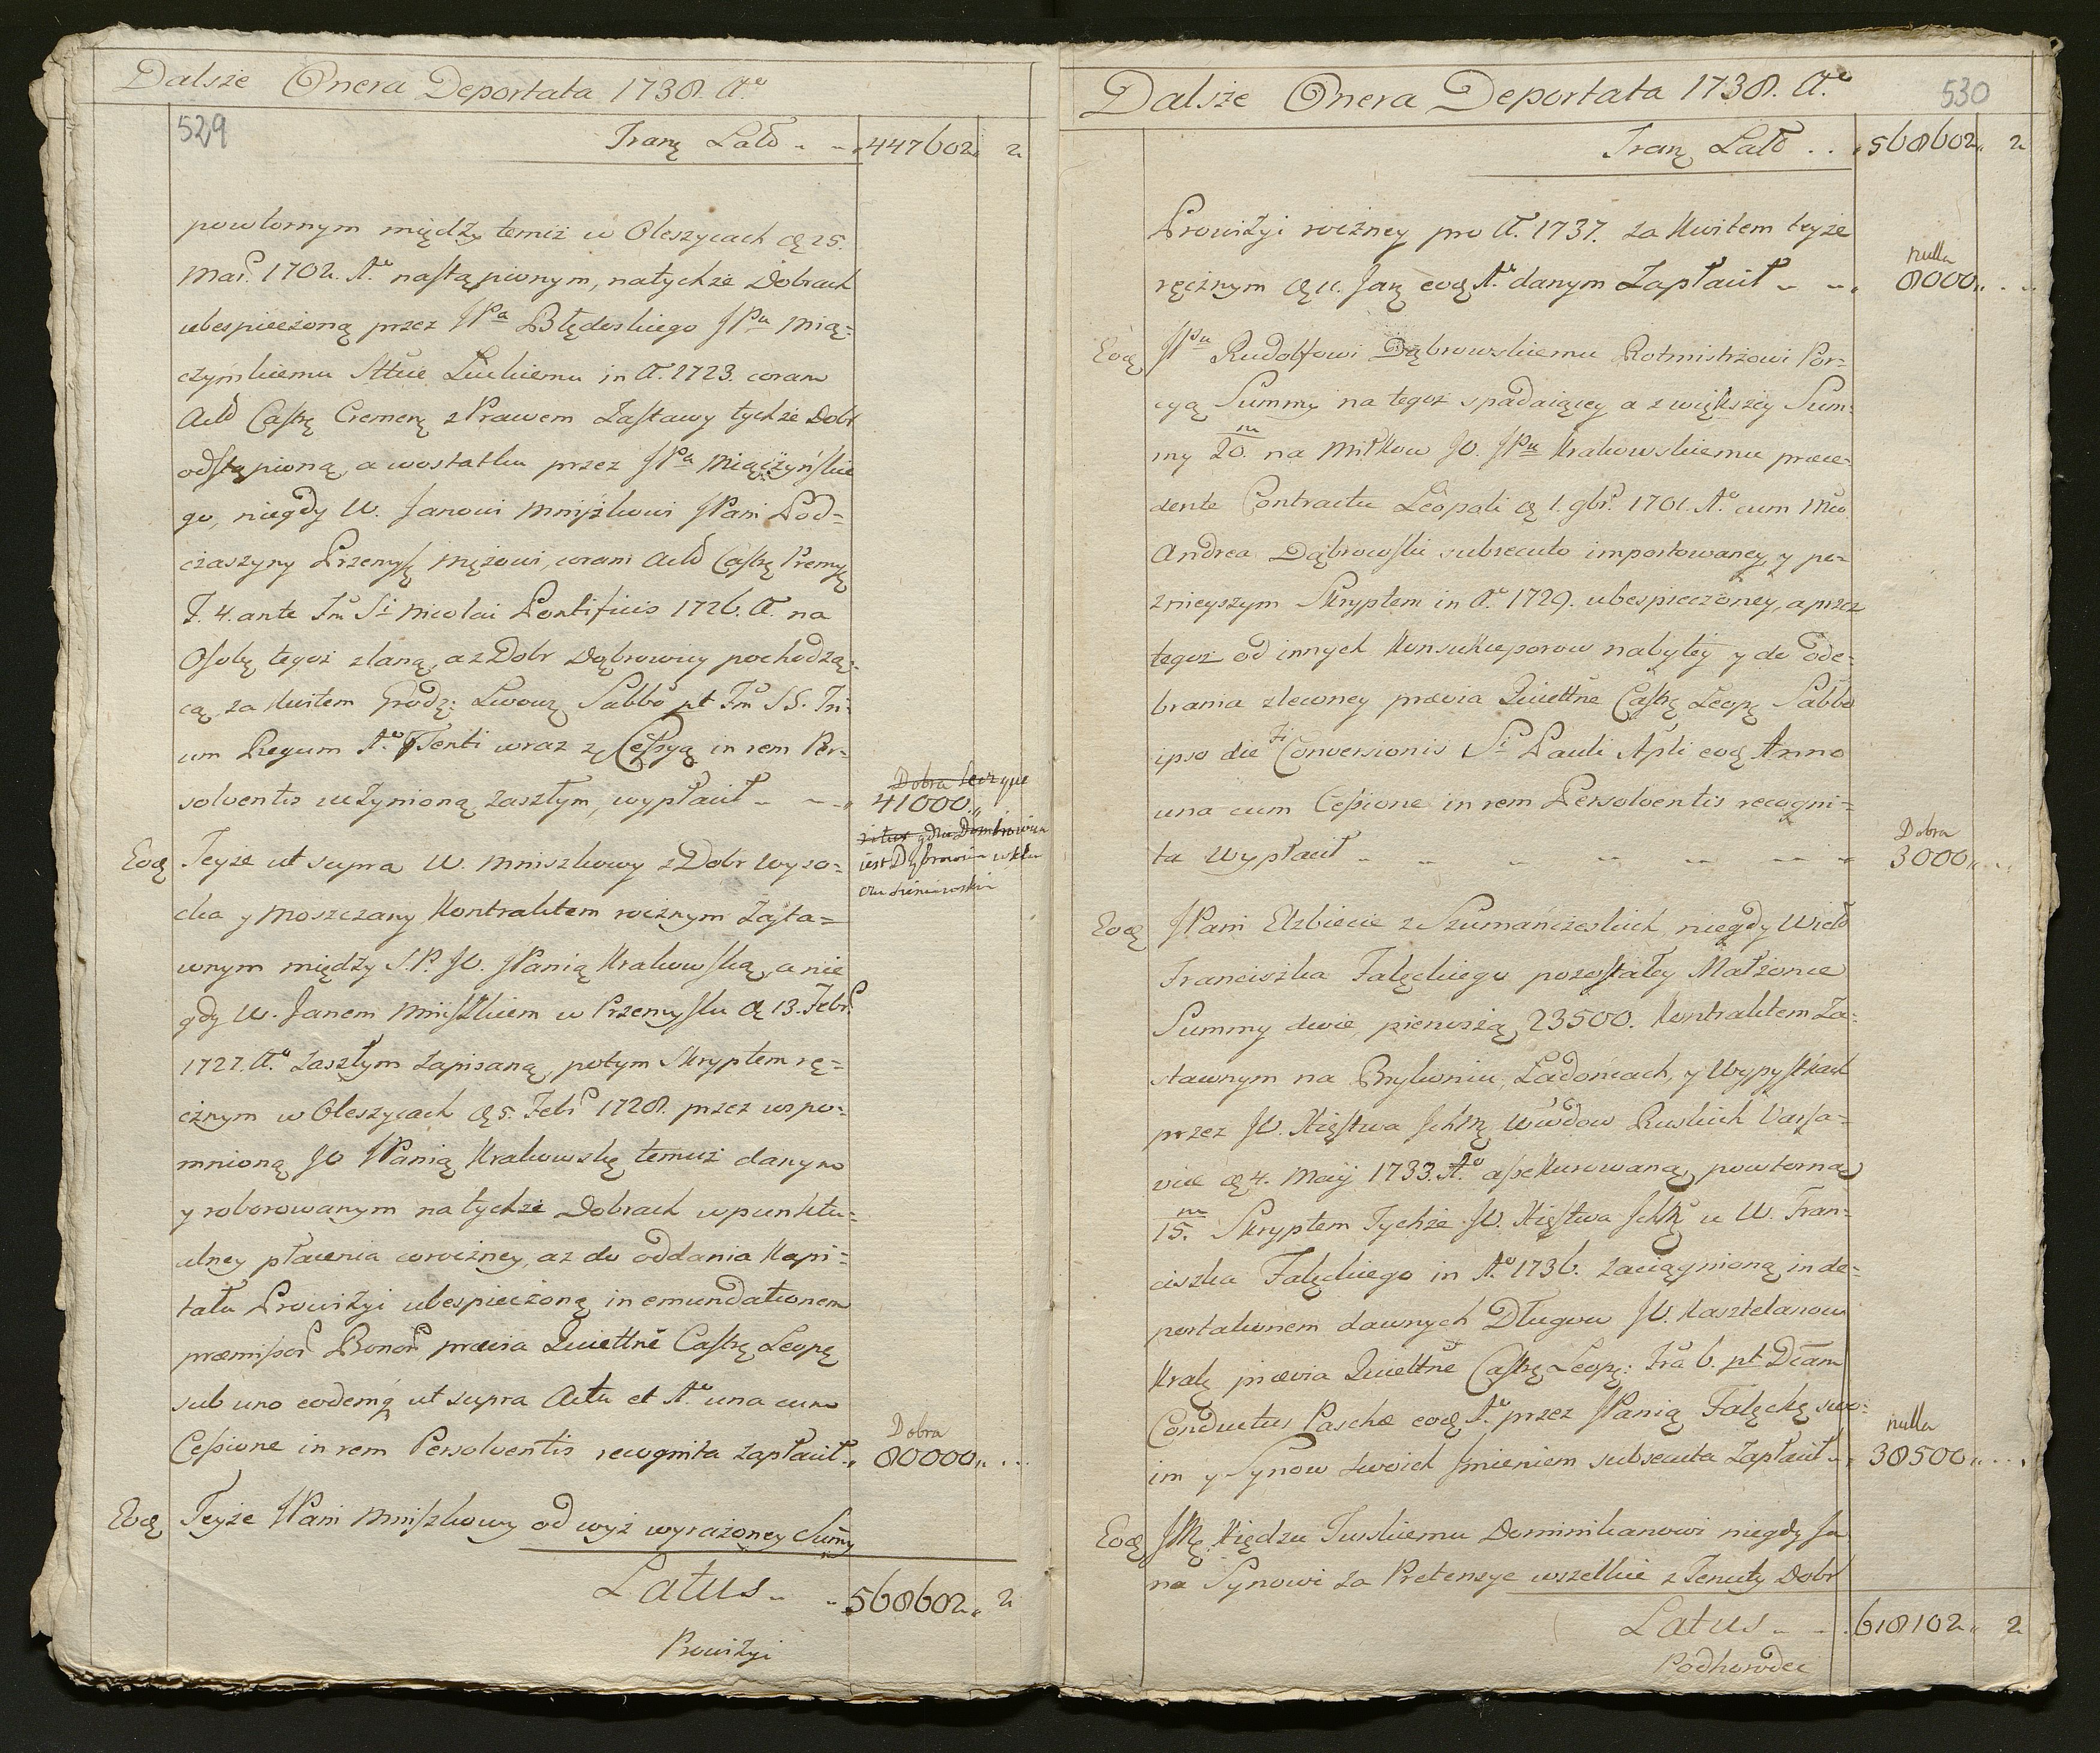 Dalsze Onera Deportata 1738. Aº
529
Tranꝫ Latꝰ .. .. 447602 " 2
powtornym między temiż w Oleszycach ꝺ 25.
Mar. 1702. Aº nastąpionym, na tychże Dobrach
ubespieczoną przez JPa Błędoskiego JPu Mią=
czynskiemu Sttcie Łuckiemu in Aº 1723. coram
Actꝰ Castrꝫ Cremenꝫ z Prawem Zastawy tychże Dobr
odstąpioną, a wostatku przez JPa Miączyńskie
go, niegdy W. Janowi Mniszkowi JPani Pod=
czaszyny Przemysꝫ mężowi, coram Actꝰ Castrꝫ Premisꝫ
F. 4. ante Fm Si Nicolai Pontificis 1726. Aº na
Osobę tegoż zlaną, a z Dobr Dąbrowicy pochodzą=
cą, za Kwitem Grodz: Lwowꝫ Sabbo pt Fm SS. Tri=
um Regum Aº Tenti wraz z Cessyą in rem Per=
solventis uczynioną zaszłym, wypłacił .. .. "
Dobra
41000 "
jest Dąbrowica w klu
czu Sieniawskim
Eoꝺ Teyże ut supra W. Mniszkowy z Dobr Wyso=
cka y Moszczany Kontraktem rocznym Zasta=
wnym między S.P. JO. JPanią Krakowską, a nie
gdy W. Janem Mniszkiem w Przemyslu ꝺ 13. Febr.
1727. Aº zaszłym zapisaną, potym Skryptem rę=
cznym w Oleszycach ꝺ 5. Febr 1728. przez wspo=
mnioną JO JPanią Krakowską temuż danym
y roborowanym na tychże Dobrach w punktu=
alney płacenia coroczney, aż do oddania Kapi=
tału Prowizyi ubespieczoną in emundationem
præmissor Bonor prævia Quiettne Castrꝫ Leopꝫ
sub uno eodemq ut supra Actu et Aº una cum
Cessione in rem Persolventis recognita zapłacił "
Dobra
80000 " ...
Eoꝺ Teyże JPani Mniszkowy od wyż wyrażoney Sumy
Latus .. .. 568602 " 2
Prowizyi
Dalsze Onera Deportata 1738. Aº
530
Tranꝫ Latꝰ .. .. 568602 " 2
Prowizyi roczney pro Aº 1737. za Kwitem teyże
ręcznym ꝺ 11. Janꝫ eoꝺ Aº danym Zapłacił .. .. "
nulla
8000 " ..
Eoꝺ JPu Rudolfowi Dąbrowskiemu Rotmistrzowi Por=
cyą Summy na tegoż spadaiącey a z większey Sum=
my 20.m na Miłkow JO. JPu Krakowskiemu præce=
dente Contractu Leopoli ꝺ 1. 9br. 1701. Aº cum Mco
Andrea Dąbrowski subsecuto importowaney, y po=
znieyszym Skryptem in Aº 1729. ubespieczoney, a przez
tegoż od innych Konsukcessorow nabytey y do ode=
brania zlewoney prævia Quiettne Castrꝫ Leopꝫ Sabbo
ipso die Fi Conversionis Si Pauli Apli eoꝺ Anno
una cum Cessione in rem Persolventis recogni=
ta Wypłacił .. .. .. .. .. .. "
Dobra
3000 " ...
Eoꝺ JPani Elzbiecie z Szumańczeskich, niegdy Wielꝰ
Franciszka Fałęckiego pozostałey Małżonce
Summy dwie, pierwszą, 23500. Kontraktem Za=
stawnym na Brykoniu, Ładońcach, y Wypyskach
przez JO. Xięstwa Jchm Wwdow Ruskich Varsa=
viæ ꝺ 4. Maij 1733. Aº assekurowaną, powtorną
15.m Skryptem Tychże JO. Xięstwa Jchm u W. Fran=
ciszka Fałęckiego in Aº 1736. zaciągnioną in de=
portationem dawnych Długow JO. Kasztelanow
Krakꝫ prævia Quiettne Castrꝫ Leopꝫ: Fra 6. pt Dcam
Conductus Paschæ eoꝺ Aº przez JPanią Fałęcką swo=
im y Synow swoich Jmieniem subsecuta Zapłacił .. "
nulla
38500 " ...
Eoꝺ JMꝫ Xiędzu Turskiemu Dominikanowi niegdy Ja
na Synowi za Pretensye wszelkie z Tenuty Dobr
Latus .. .. 618102 " 2
Podhorodec